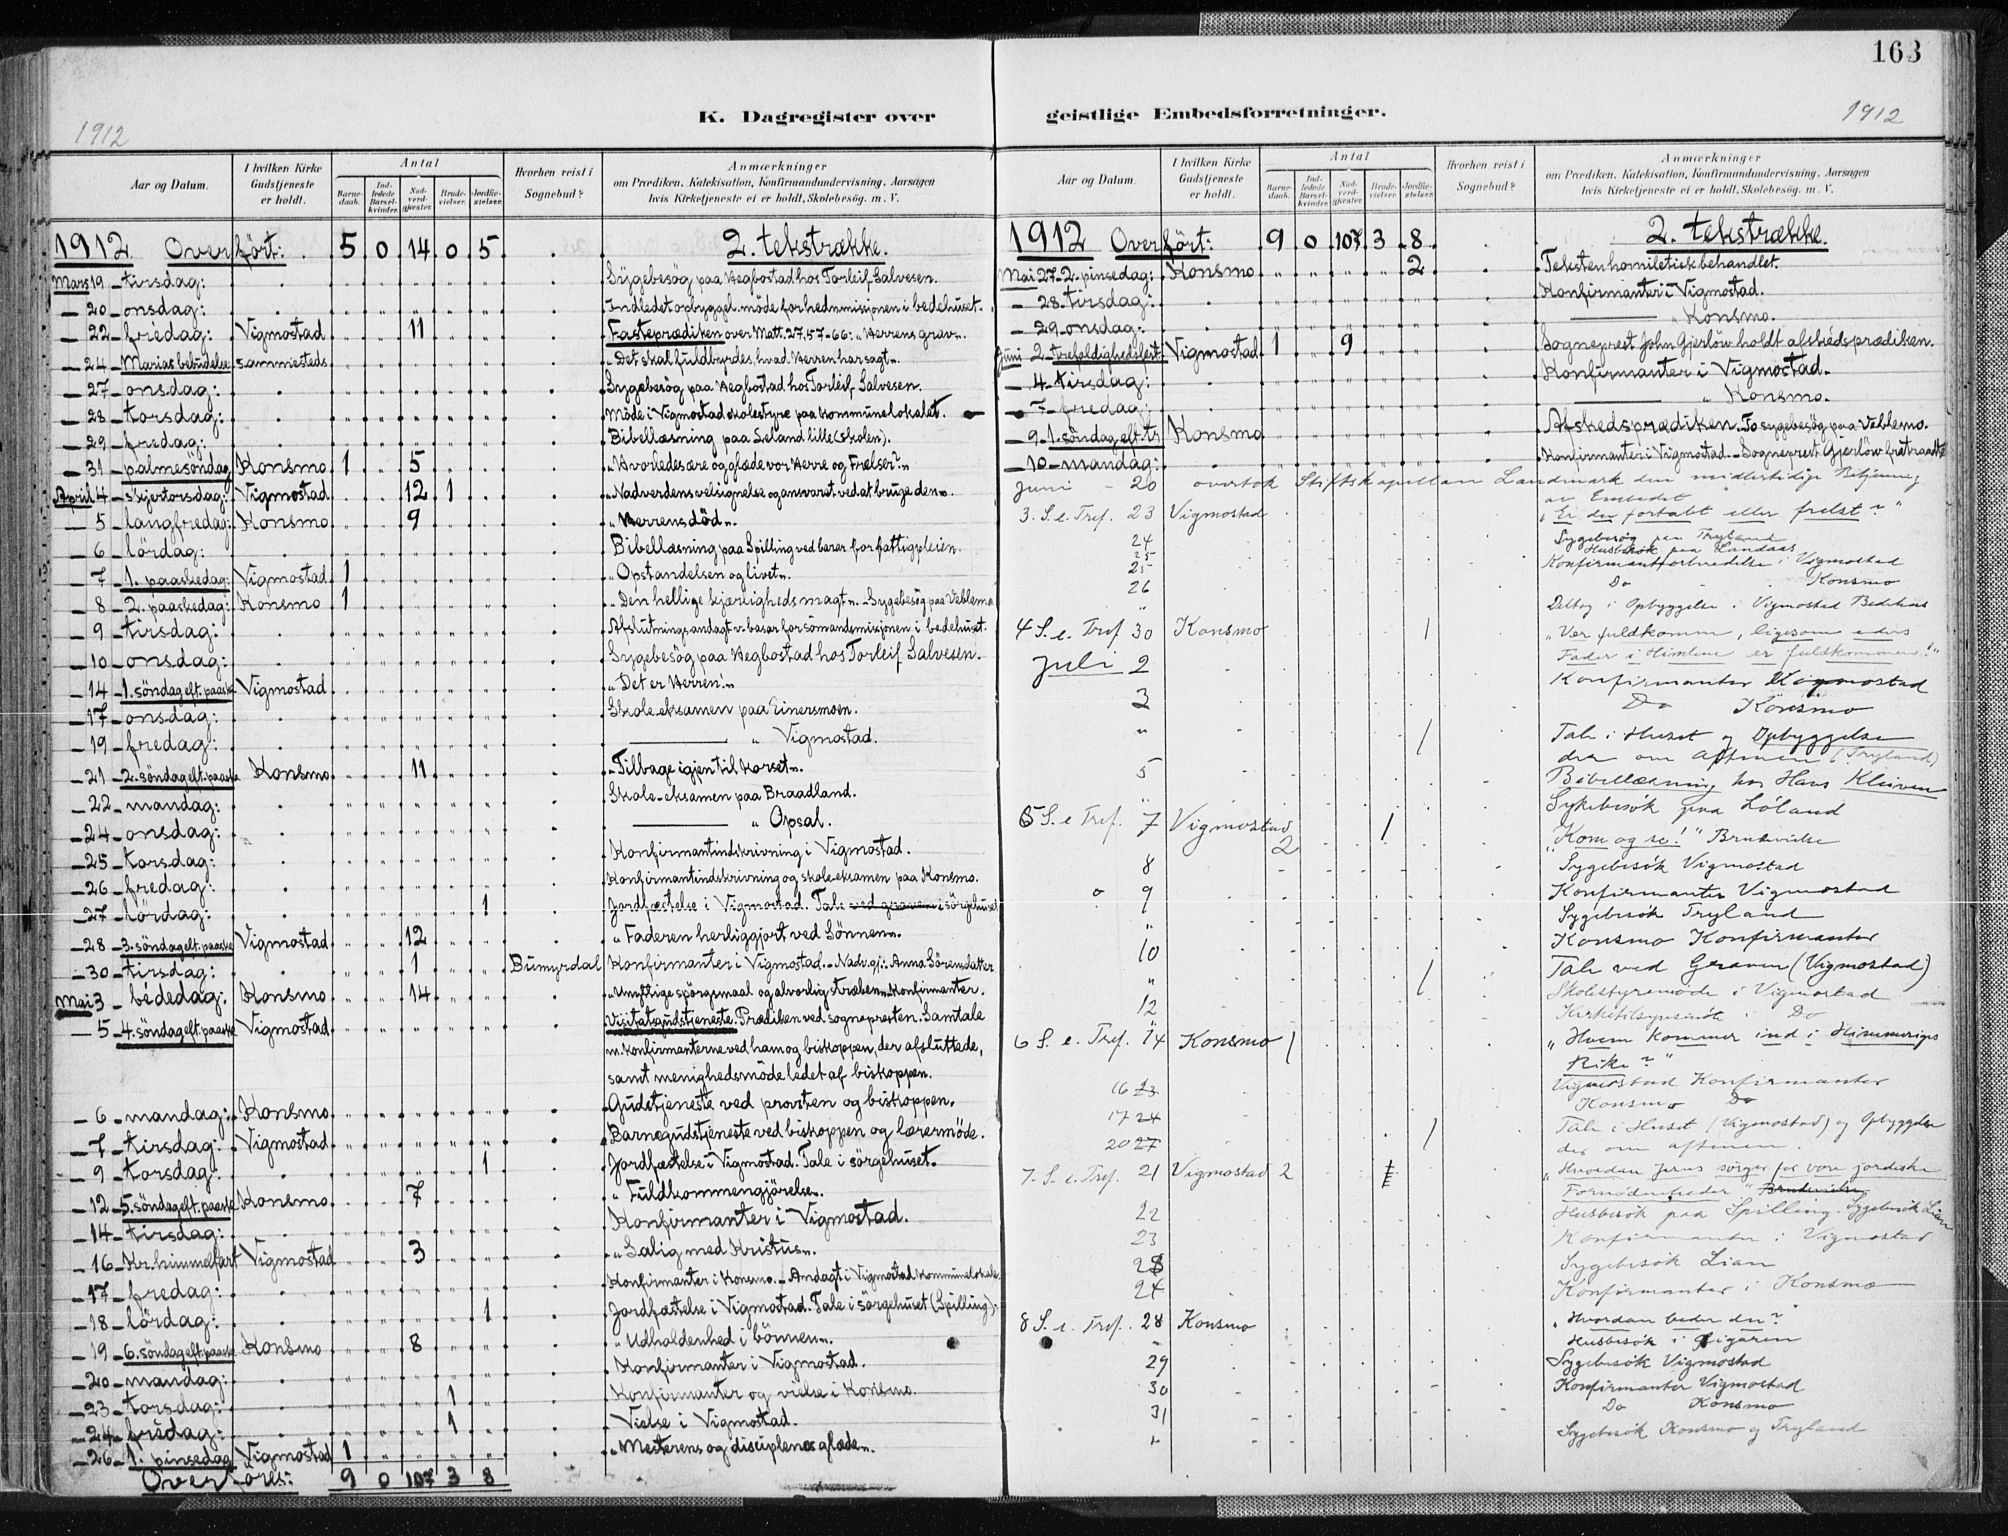 163
K. Dagregister over geistlige Embedsforretninger.
1912
1912
Aar og Datum.
I hvilken Kirke Gudstjeneste er holdt.
Antal
Barne-daab.
Ind-ledede Barsel-kvinder.
Nad-verd-gjæster.
Brude-vielser.
Jordfæ-stelser.
Hvorhen reist i Sognebud?
Anmærkninger
om Prædiken, Katekisation, Konfirmandundervisning, Aarsagen
hvis Kirketjeneste ei er holdt, Skolebesøg. m. V.
1912 Overført: 5 0 14 0 5 2. tekstrække.
Mars 19 - tirsdag: Sygebesøg paa Hegbostad hos Torleif Salvesen.
- 20 - onsdag: Indledet opbyggel. møde for hedn.missionen i bedehuset.
- 22 - fredag: Vigmostad 11 Fasteprædiken over Matt. 27,57-66: "Herrens grav".
- 24 - Marias bebudelse: sammesteds "Det skal fuldbyrdes, hvad Herren har sagt".
- 27 - onsdag: Sygebesøg paa Hegbostad hos Torleif Salvesen.
- 28 - torsdag: Møde i Vigmostad skolestyre paa kommunelokalet.
- 29 - fredag: Bibellæsning paa Seland lille (skolen).
- 31 - palmesøndag Konsmo 1 5 "Hvorledes ære og glæde vor Herre og Frelser?"
April 4 - skjærtorsdag: Vigmostad 12 1 "Nadverdens velsignelse og ansvaret ved at bruge den".
- 5 - langfredag: Konsmo 9 "Herrens død".
- 6 - lørdag: Bibellæsning paa Spilling ved basar for fattigpleien.
- 7 - 1. paaskedag: Vigmostad 1 "Opstandelsen og livet".
- 8 - 2. paaskedag: Konsmo 1 "Den hellige kjærligheds magt". - Sygebesøg paa Veblemo
- 9 - tirsdag: Afslutningsandagt v. basar for sømandsmissionen i bedehuset.
- 10 - onsdag: Sygebesøg paa Hegbostad hos Torleif Salvesen.
- 14 - 1. søndag eft. paaske Vigmostad "Det er Herren!"
- 17 - onsdag: Skole-eksamen paa Einersmoen.
- 19 - fredag: " Vigmostad.
- 21 - 2. søndag eft. paaske Konsmo 11 "Tilbage igjen til korset".
- 22 - mandag: Skole-eksamen paa Braadland.
- 24 - onsdag: " Opsal.
- 25 - torsdag: Konfirmantindskrivning i Vigmostad.
- 26 - fredag: Konfirmantindskrivning og skole-eksamen paa Konsmo.
- 27 - lørdag: 1 Jordfæstelse i Vigmostad. Tale ved graven i sørgehuset
- 28 - 3. søndag eft. paaske Vigmostad 12 "Faderen herliggjort ved Sønnen".
- 30 - tirsdag: 1 Bumyrdal Konfirmanter i Vigmostad. - Nadv.gj.: Anna Sørensdatter
Mai 3 - bededag: Konsmo 14 "Unyttige spørgsmaal og alvorlig stræben". Konfirmanter.
- 5 - 4. søndag eft. paaske Vigmostad Visitatsgudstjeneste. Prædiken ved sognepresten. Samtale
m. konfirmanterne ved ham og biskoppen, der afsluttede,
samt menighedsmøde ledet af biskoppen.
- 6 - mandag: Konsmo Gudstjeneste ved provsten og biskoppen.
- 7 - tirsdag: Vigmostad Barnegudstjeneste ved biskoppen og lærermøde.
- 9 - torsdag: 1 Jordfæstelse i Vigmostad. Tale i sørgehuset.
- 12 - 5. søndag eft. paaske Konsmo 7 "Fuldkommengjørelse".
- 14 - tirsdag: Konfirmanter i Vigmostad.
- 16 - Kr. himmelfart Vigmostad 3 "Salig med Kristus".
- 17 - fredag: Konfirmanter i Konsmo. - Andagt i Vigmostad kommunelokale.
- 18 - lørdag: 1 Jordfæstelse i Vigmostad. Tale i sørgehuset (Spilling).
- 19 - 6. søndag eft. paaske Konsmo 8 "Udholdenhed i bønnen".
- 20 - mandag: Konfirmanter i Vigmostad.
- 23 - torsdag: 1 Konfirmanter og vielse i Konsmo.
- 24 - fredag: 1 Vielse i Vigmostad.
- 26 - 1. pinsedag Vigmostad 1 "Mesterens og disciplenes glæde".
Overføres: 9 0 107 3 8
Aar og Datum.
I hvilken Kirke Gudstjeneste er holdt.
Antal
Barne-daab.
Ind-ledede Barsel-kvinder.
Nad-verd-gjæster.
Brude-vielser.
Jordfæ-stelser.
Hvorhen reist i Sognebud?
Anmærkninger
om Prædiken, Katekisation, Konfirmandundervisning, Aarsagen
hvis Kirketjeneste ei er holdt, Skolebesøg. m. V.
1912 Overført: 9 0 107 3 8 2. tekstrække.
Mai 27 - 2. pinsedag: Konsmo 2 Teksten homiletisk behandlet.
- 28. tirsdag: Konfirmanter i Vigmostad.
- 29. onsdag: " Konsmo.
Juni 2 - trefoldighedsfest Vigmostad 1 9 Sogneprest John Gjerløw holdt afskedsprædiken.
- 4. tirsdag: Konfirmanter i Vigmostad.
- 7 - fredag: " Konsmo.
- 9 - 1. søndag eft. tr. Konsmo Afskedsprædiken. To sygebesøg paa Veblemo.
- 10 - mandag: Konfirmanter i Vigmostad. - Sogneprest Gjerløw fratraadte
Juni - 20 overtok Stiftskapellan Landmark den midlertidige Betjening
av Embedet
3. S. e. Tref. 23 Vigmostad "Er du fortabt eller frelst?"
24 Sygebesøg paa Tryland
25 Husbesøk paa Landaas
25 Konfirmantforberedelse i Vigmostad
26 Do Konsmo
" Deltog i Opbyggelse i Vigmostad Bedehus
4 S. e. Tref 30 Konsmo 1 "Vær fuldkomm, ligesom eders
Fader i Himlene er fuldkommen!"
Juli 2 Konfirmanter Vigmostad
3 Do Konsmo
" 1 Tale i Huset og Opbyggelse
der om Aftenen (Tryland)
5 Bibellæsning hos Hans Kleiven
" Sykebesøk paa Løland
5 S. e Tref. 7 Vigmostad 2 1 "Kom og se!" Brudevielse
8 Sygebesøk Vigmostad
9 Konfirmanter Vigmostad
" Sygebesøk Tryland
10 Konsmo Konfirmanter
" 1 Tale ved Graven (Vigmostad)
12 Skolestyremøde i Vigmostad
" Kirketilsynsmøte i Do
6 S. e. Tref. 14 Konsmo 1 "Hvem kommer ind i Himmeriges
Rike?"
16 23 Vigmostad Konfirmanter
17 24 Konsmo Do
20 27 1 Tale i Huset (Vigmostad) og Opbyggelse
der om aftenen.
7. S. e. Tref. 21 Vigmostad 2 "Hvordan Jesus sørger for vore jordiske
Fornødenheder" Brudevielse
22 Husbesøk paa Spilling. Sygebesøk Lian
23 Konfirmanter i Vigmostad
Sygebesøk Lian
24 Konfirmanter i Konsmo
8 S. e. Tref. 28 Konsmo "Hvordan beder du?"
" Husbesøk i
29 Sygebesøk Vigmostad
30 Konfirmanter Vigmostad
31 Do Konsmo
" Sygebesøk Konsmo og Tryland